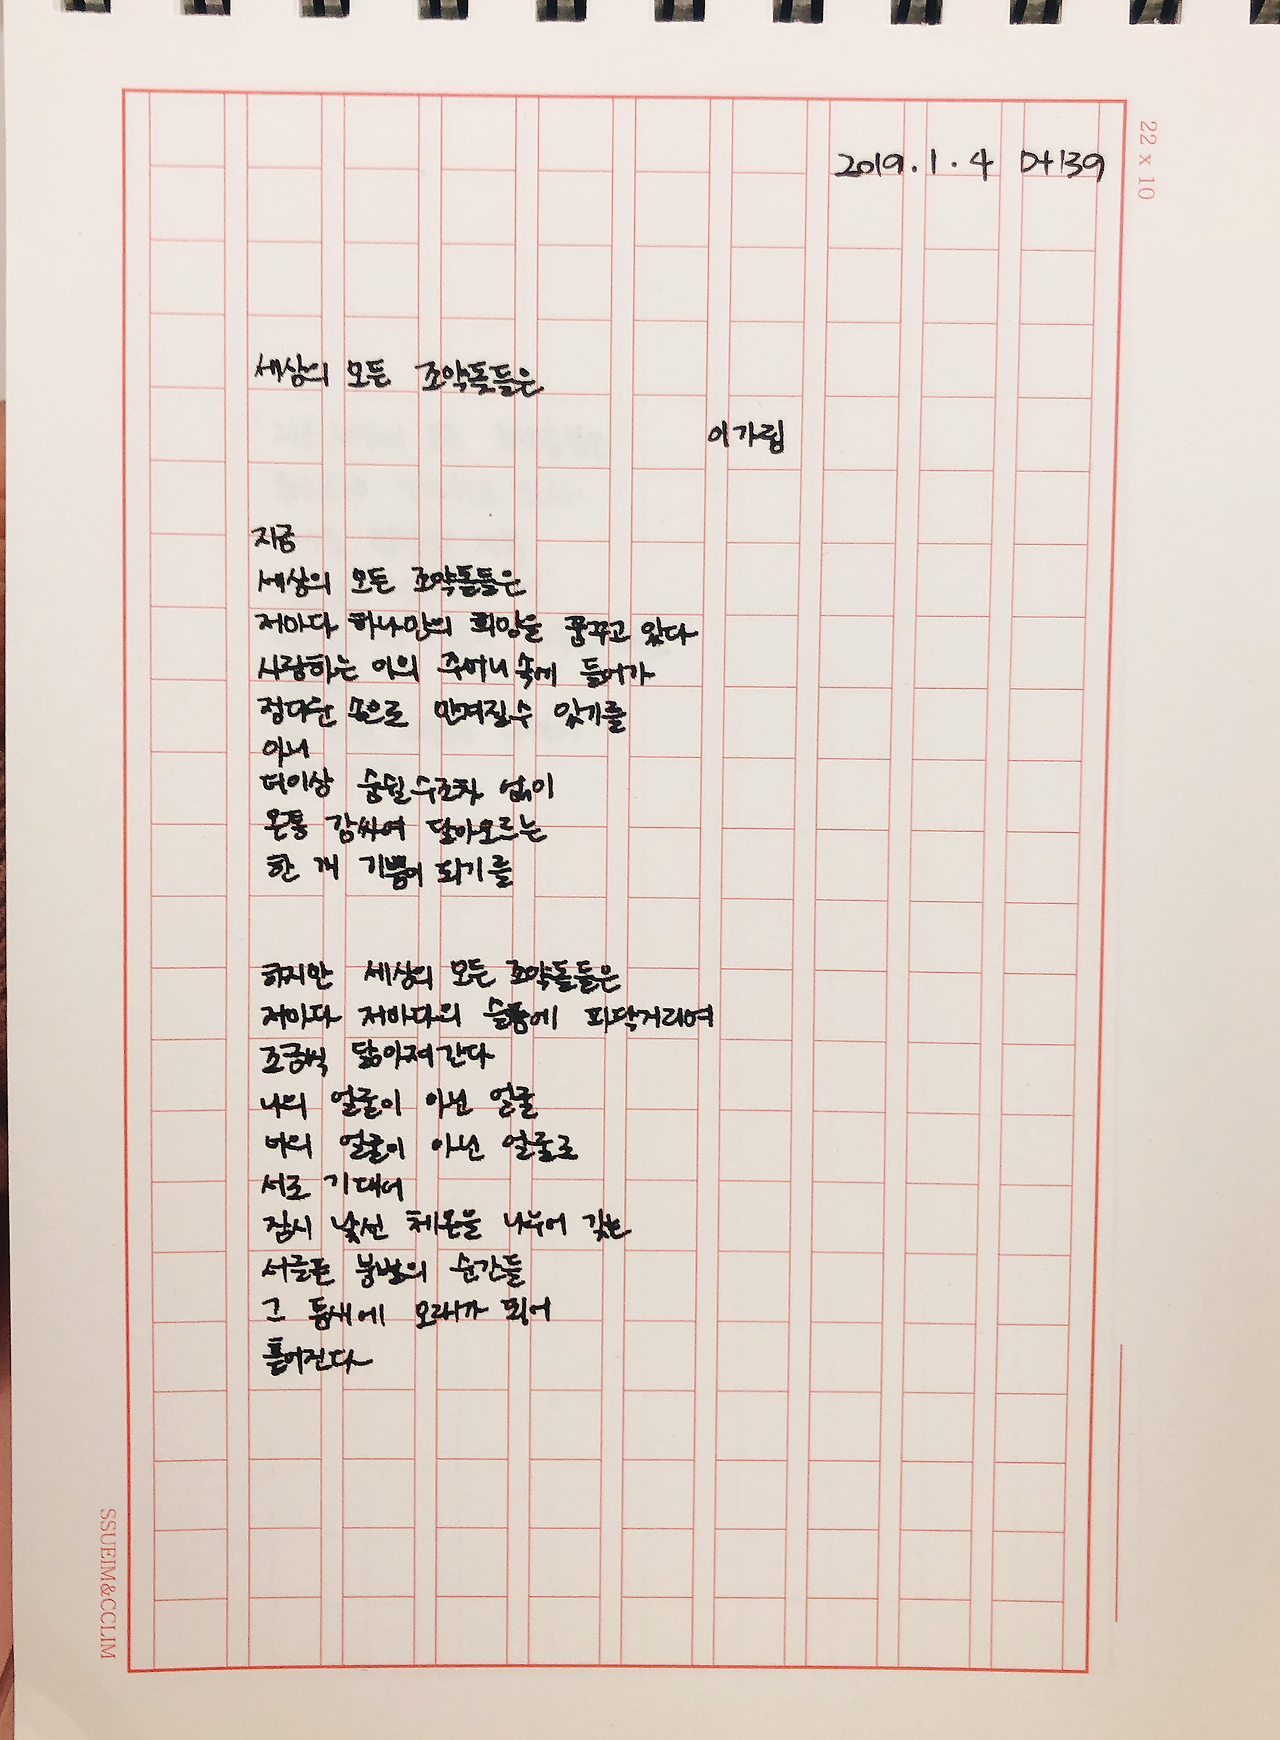 22 x 10
2019.1.4 D+139
세상의 모든 조약돌들은
이가림
지금
세상의 모든 조약돌들은
저마다 하나만의 희망을 꿈꾸고 있다
사랑하는 이의 주머니 속에 들어가
정다운 손으로 만져질 수 있기를
아니
더이상 숨쉴 수조차 없이
온통 감싸여 달아오르는
한 개 기쁨이 되기를
하지만 세상의 모든 조약돌들은
저마다 저마다의 슬픔에 파닥거리며
조금씩 닳아져 간다
나의 얼굴이 아닌 얼굴
너의 얼굴이 아닌 얼굴로
서로 기대어
잠시 낯선 체온을 나누어 갖는
서글픈 불별의 순간들
그 틈새에 모래가 되어
흩어진다
SSUEIM&CCLIM